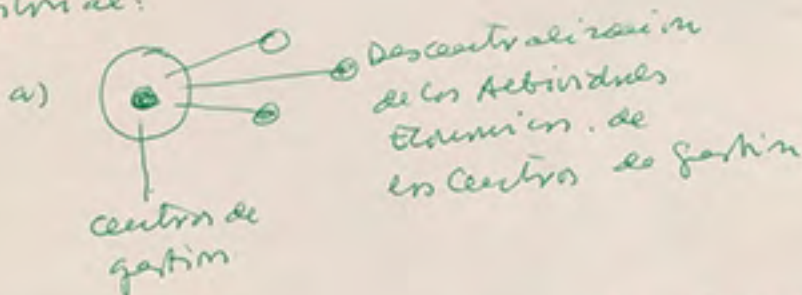 a)
Descentralización
de las Actividades
Económicas. de
los Centros de Gestión
centros de
gestión